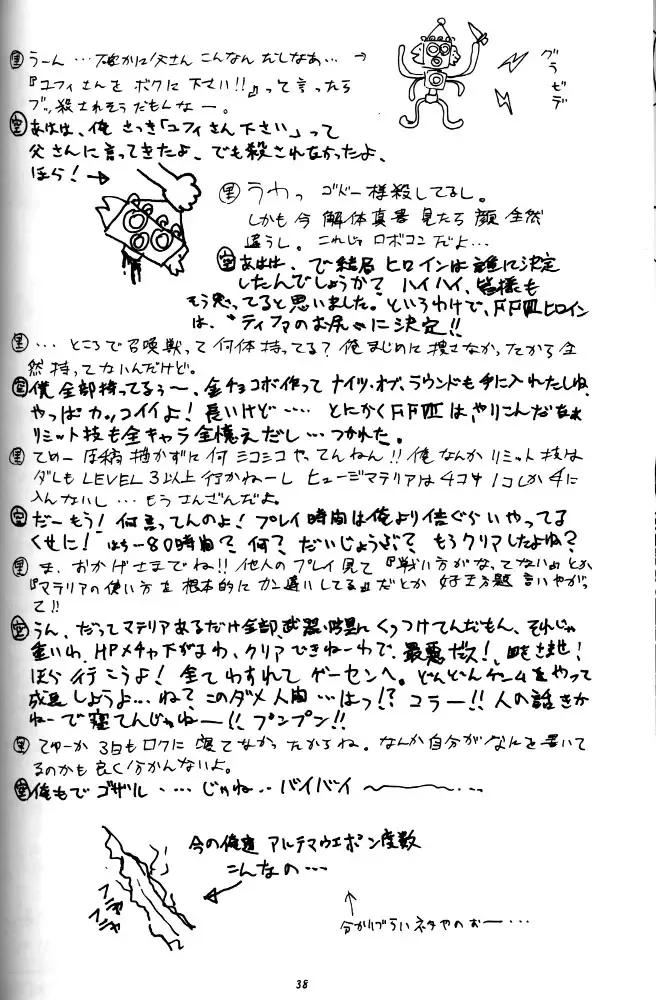 里 うーん…確かに父さんこんなんだしなあ… →
『ユフィさんをボクに下さい!!』って言ったら
ブッ殺されそうだもんなー。
グラ
ゼデ
空 あはは、俺さっき「ユフィさん下さい」って
父さんに言ってきたよ、でも殺されなかったよ、
ほら! →
里 うわっ ゴドー様殺してるし。
しかも今 解体真書 見たら 顔 全然
違うし。これじゃロボコンだよ…
空 あはは、で結局 ヒロインは誰に決定
したんでしょうか? ハイハイ、皆様も
もう思ってると思いました。というわけで、FFⅦヒロイン
は、"ティファのお尻"に決定!!
里 … ところで召喚獣って何体持ってる? 俺まじめに捜さなかったから全
然持ってないんだけど。
空 僕全部持ってるぅ〜、金チョコボ作ってナイツ・オブ・ラウンドも手に入れたしね、
やっぱカッコイイよ! 長いけど…… とにかくFFⅦは、やりこんだなぁ
リミット技も全キャラ全憶えだし…つかれた。
里 てめー原稿描かずに何ニコニコやってんねん!! 俺なんかリミット技は
ダレもLEVEL3以上行かねーし ヒュージマテリアは4コ中1コしか手に
入んないし…もうさんざんだよ。
空 だーもう! 何言ってんのよ! プレイ時間は俺より倍ぐらいやってる
くせに! 80時間? 何? だいじょうぶ? もうクリアしたよね?
里 ま、おかげさまでね!! 他人のプレイ見て『戦い方がなってない』とか
『マテリアの使い方を根本的にカン違いしてる』だとか 好き放題言いやがっ
て!!
空 うん、だってマテリアあるだけ全部、武器、防具にくっつけてんだもん、それじゃ
重いわ、HPメチャ下がるわ、クリアできねーわで、最悪だス!
ほら行こうよ! 全てわすれてゲーセンへ。どんどんゲームをやって
成長しようよ…ね? このダメ人間…はっ!? コラー!! 人の話きか
ねーで寝てんじゃねー!! プンプン!!
里 てゆーか3日もロクに寝てなかったからね。なんか自分がなにを書いて
るのかも良く分かんないよ。
空 俺もでゴザル……じゃね…バイバイ
今の俺達アルテマウエポン度数
こんなの…
フニャ
フニャ
↑
分かりづらいネタやのおー…
38